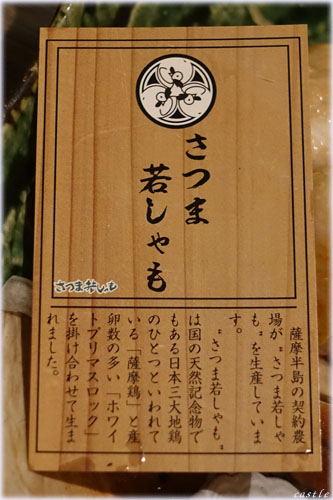 さつま
若しゃも
さつま若しゃも
薩摩半島の契約農
場が〝さつま若しゃ
も〟を生産していま
す。
〝さつま若しゃも〟
は国の天然記念物で
もある日本三大地鶏
のひとつといわれて
いる「薩摩鶏」と産
卵数の多い「ホワイ
トプリマスロック」
を掛け合わせて生ま
れました。
castle